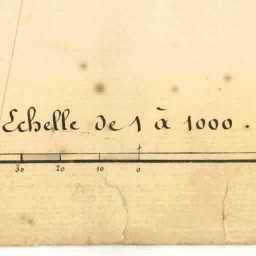 Echelle de 1 à 1000.
30 20 10 0